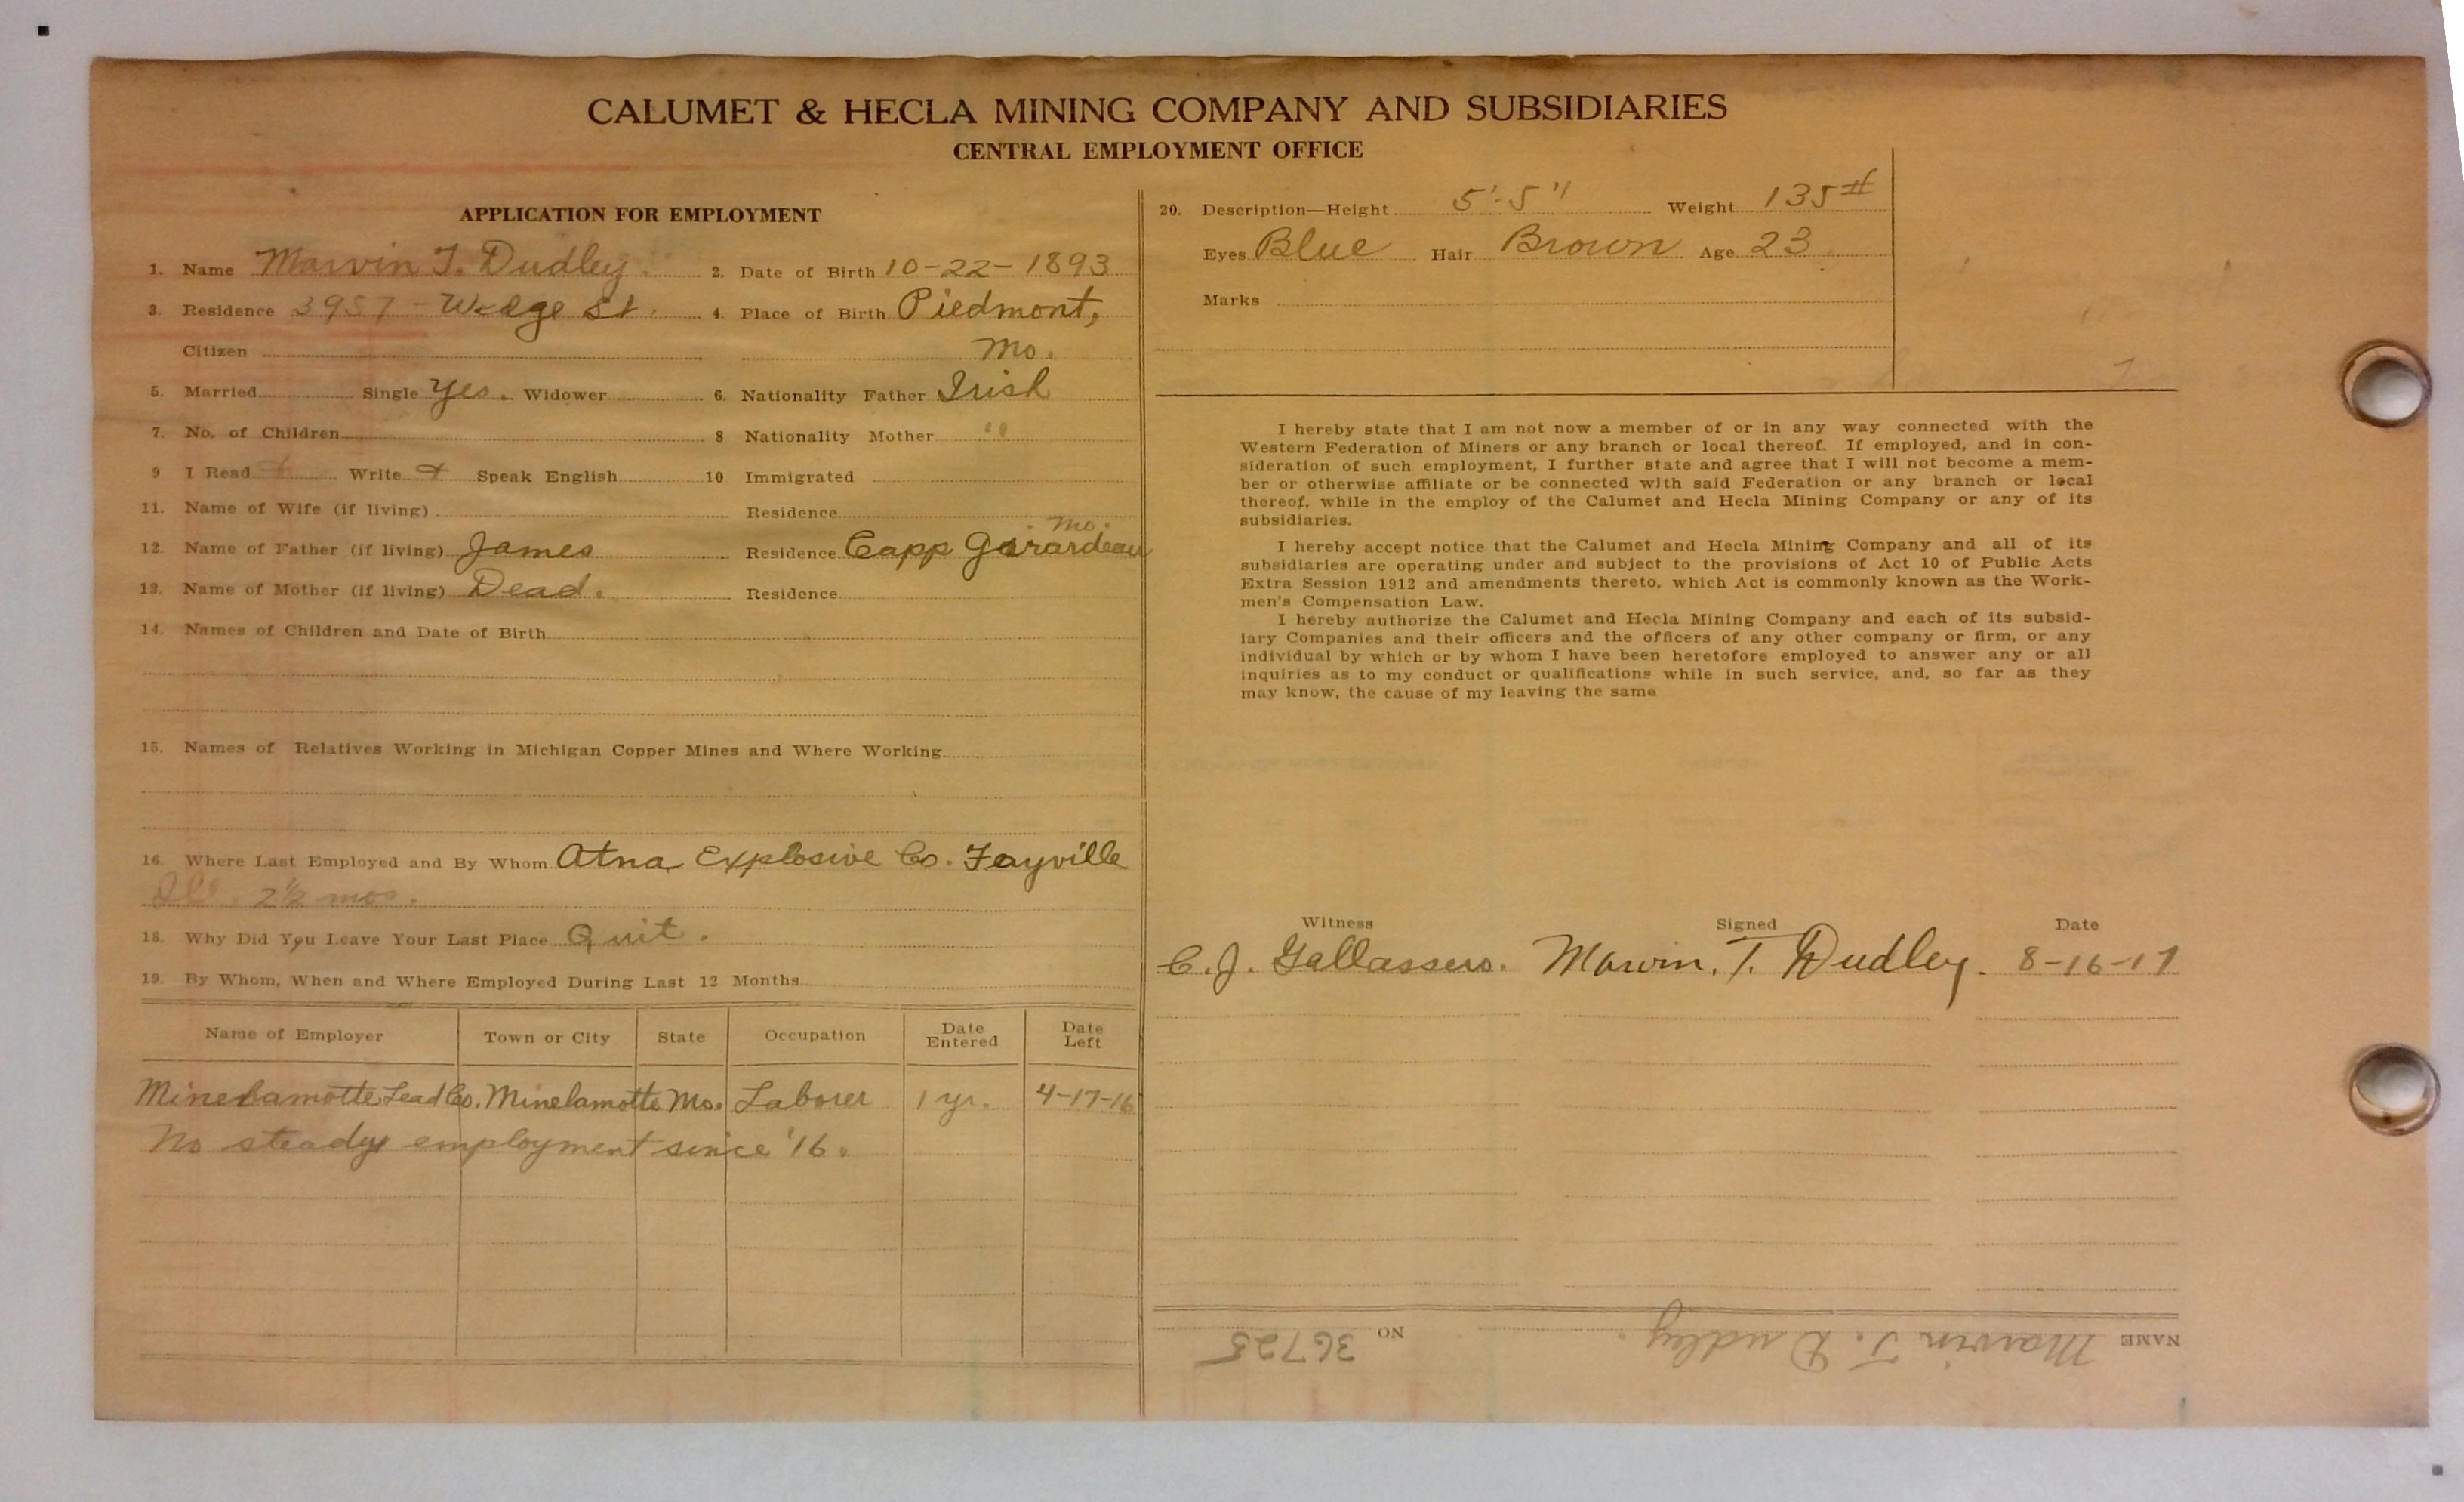 CALUMET & HECLA MINING COMPANY AND SUBSIDIARIES
CENTRAL EMPLOYMENT OFFICE
APPLICATION FOR EMPLOYMENT
1. Name Marvin T. Dudley. 2. Date of Birth 10-22-1893
3. Residence 3957 - Wedge St. 4. Place of Birth Piedmont,
Citizen Mo.
5. Married Single Yes. Widower 6. Nationality Father Irish
7. No. of Children 8 Nationality Mother "
9 I Read Write Speak English 10 Immigrated
11. Name of Wife (if living) Residence
12. Name of Father (if living) James Residence Capp Garardeau Mo.
13. Name of Mother (if living) Dead. Residence
14. Names of Children and Date of Birth
15. Names of Relatives Working in Michigan Copper Mines and Where Working
16. Where Last Employed and By Whom Atna Explosive Co. Fayville
Ill. 2½ mos.
18. Why Did You Leave Your Last Place Quit.
19. By Whom, When and Where Employed During Last 12 Months
Name of Employer Town or City State Occupation Date Entered Date Left
Minelamotte Lead Co. Minelamotte Mo. Laborer 1 yr. 4-17-16
No steady employment since '16.
20. Description—Height 5'-5" Weight 135#
Eyes Blue Hair Brown Age 23
Marks
I hereby state that I am not now a member of or in any way connected with the
Western Federation of Miners or any branch or local thereof. If employed, and in con-
sideration of such employment, I further state and agree that I will not become a mem-
ber or otherwise affiliate or be connected with said Federation or any branch or local
thereof, while in the employ of the Calumet and Hecla Mining Company or any of its
subsidiaries.
I hereby accept notice that the Calumet and Hecla Mining Company and all of its
subsidiaries are operating under and subject to the provisions of Act 10 of Public Acts
Extra Session 1912 and amendments thereto, which Act is commonly known as the Work-
men's Compensation Law.
I hereby authorize the Calumet and Hecla Mining Company and each of its subsid-
iary Companies and their officers and the officers of any other company or firm, or any
individual by which or by whom I have been heretofore employed to answer any or all
inquiries as to my conduct or qualifications while in such service, and, so far as they
may know, the cause of my leaving the same
Witness Signed Date
C. J. Marvin. T. Dudley. 8-16-17
NAME Marvin T. Dudley. NO 36725